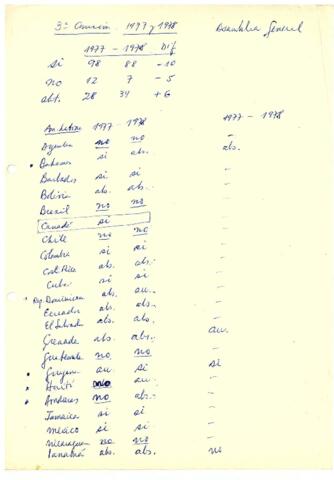 3ª Comisión 1977 y 1978 Asamblea General
1977 - 1978 Dif
si 98 88 - 10
no 12 7 - 5
abt. 28 34 + 6
América 1977 - 1978 1977 - 1978
Argentina no no -
• Bahamas si abs. abs.
Barbados si si -
Bolivia abs. abs. -
Brazil no no -
Canadá si -
Chile no no -
Colombia si si -
Cost. Rica abs. si -
Cuba si si -
Rep. Dominicana abs. au. -
Ecuador abs. abs. -
El Salvador abs. abs. -
Grenade abs. abs. au.
Guatemala no no -
• Guyana au. si si
• Haití no au. -
• Honduras no abs. -
Jamaica si si -
México si si -
Nicaragua no no -
Panamá abs. abs. no